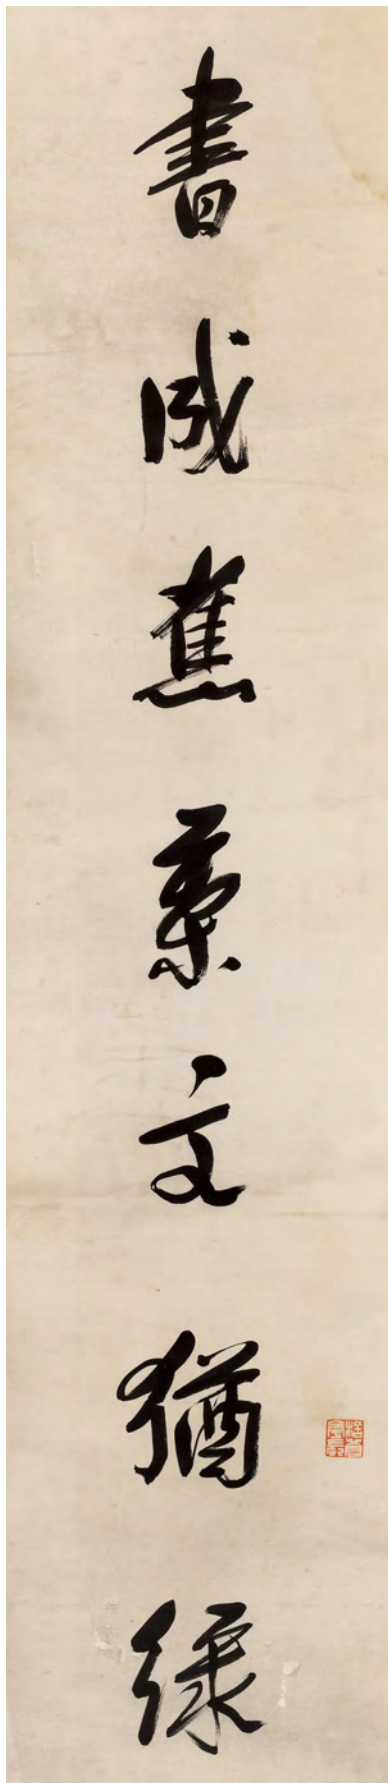 書成蕉葉文猶綠